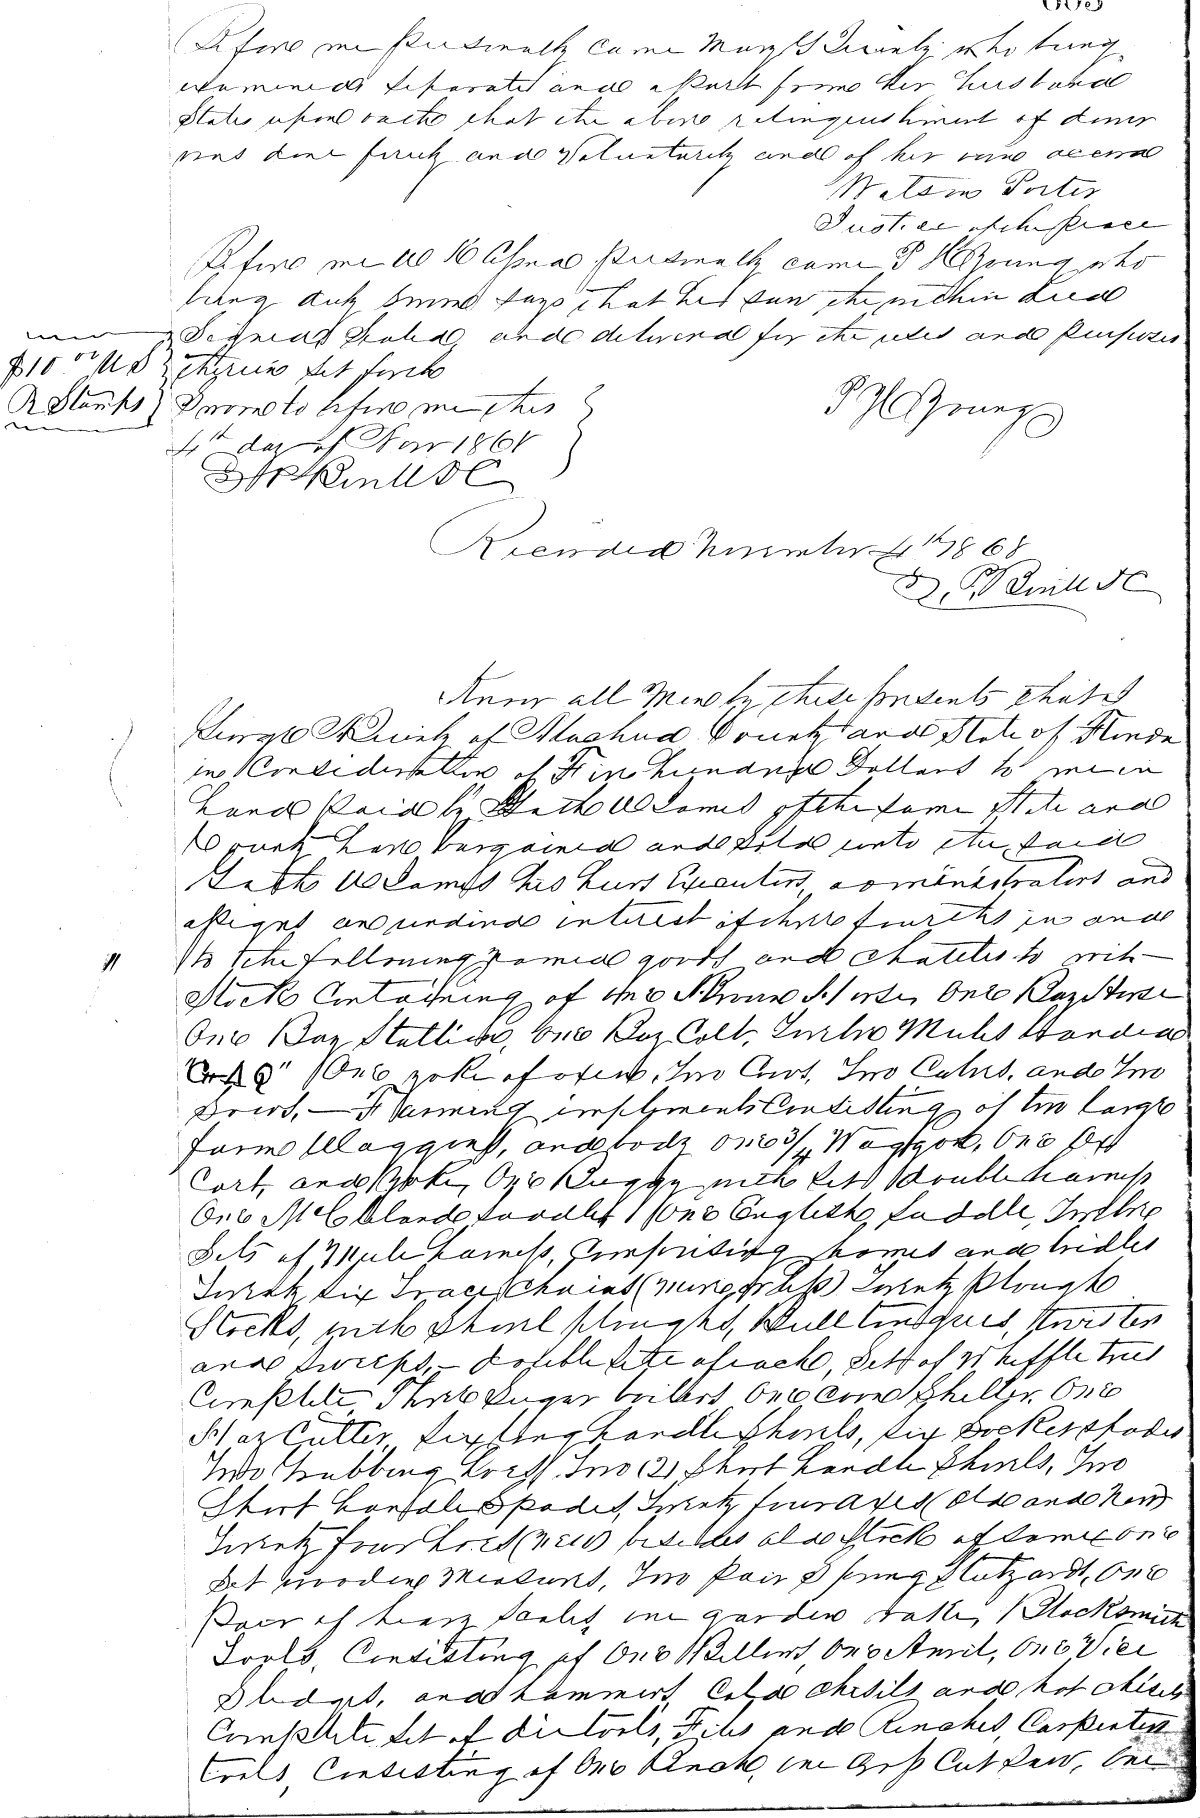 Before me Personally came Mary S who being
examined Separate and apart from her husband
States upon oath that the above relinquishment of dower
was done freely and Voluntarily and of her own accord
Watson Porter
Justice of the Peace
Before me Personally came P H Young who
being duly sworn says that he saw the within deed
Signed Sealed and delivered for the uses and Purposes
$10 00 U S
therein set forth
R Stamps
Sworn to before me this
P H Young
4th day of Nov 1868
D C
Recorded November 4th 1868
D C
Know all Men by these presents that I
George of Alachua County and State of Florida
in Consideration of Five hundred Dollars to me in
hand Paid by of the same State and
County have bargained and sold unto the said
his heirs Executors, administrators and
assigns an undivid interest of three fourths in and
to the following named goods and chatteles to wit—
Stock Containing of one Brown Horse, One Bay Horse
One Bay Stallion, One Bay Colt, Twelve Mules branded
One yoke of oxen, Two Cows, Two Calves, and Two
Sows,— Farming implements Consisting of two large
farm Waggons, and body one 3/4 Waggon, One Ox
Cart, and Yoke, One Buggy with Sett double harness
One McClland saddle One English saddle, Twelve
Sets of Mule harness, Comprising homes and bridles
Twenty six Trace Chains Twenty Plough
Stocks, with Shovel ploughs, Bull tongues, twisters
and sweeps,— double sete of each, Sett of Whiffle trees
Complete Three Sugar boilers One corn Sheller, One
Hay Cutter, six long handle Shovels, six Socket spades
Two Grubbing hoes, Two (2) Short handle Shovels, Two
Short handle Spades, Twenty four Axes (old and New)
Twenty four hoes (new) besides old Stock of same one
Set wooden Measures, Two Pair Spring One
Pair of heavy Scales, one garden rake, Blacksmith
Tools, Consisting of One Bellows, One Anvil, One Vice
Sledges, and hammers, Cold chisels and hot chisels
Complete Set of die tools, Files and Carpenters
tools, Consisting of One one Cut Saw, One